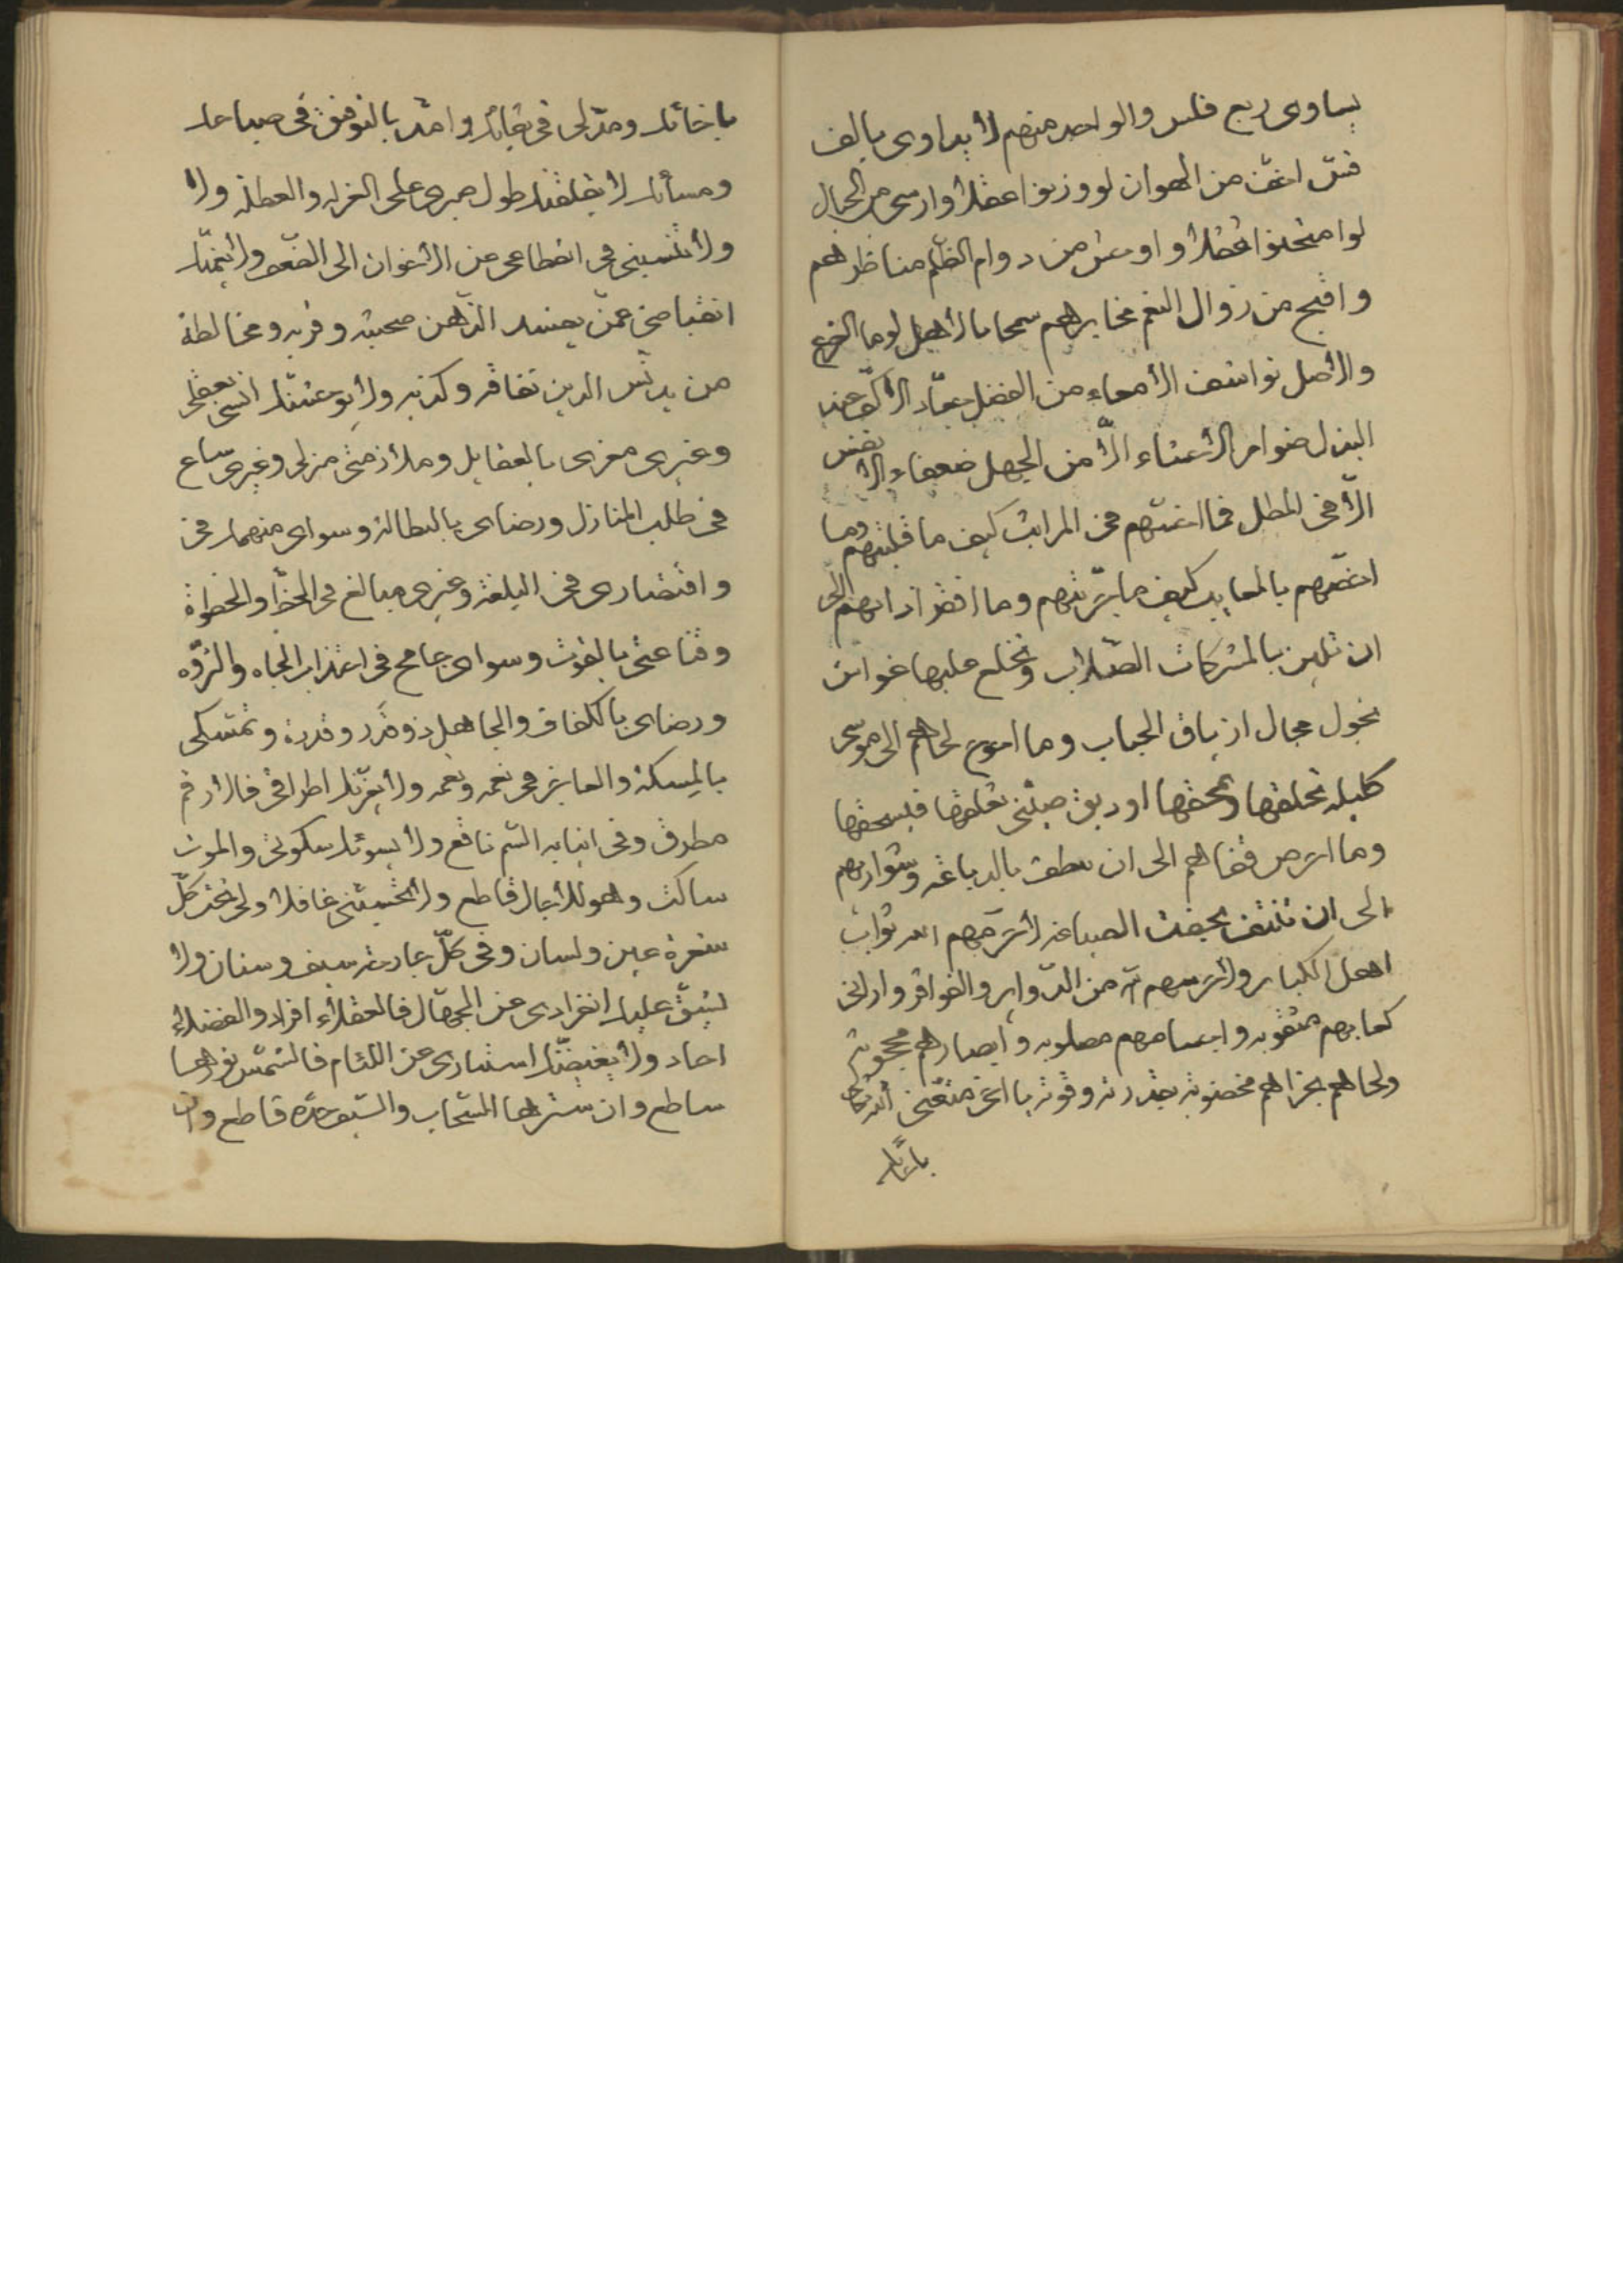 يساوى ربع فلس والواحد منهم لا يداوى بالف
اخف من الهوان لو وزنوا عقلا وارسى من الجبال
لو امتحنوا ثقلا واوحش من دوام الظلم مناظرهم
واقبح من زوال النعم مخابرهم سمحا بالاهل لوما الفرع
والاصل نواشف الامعاء من الفضل جعاد الاكف عند
البذل ضوامر الاحشاء الا من الجهل ضعفاء الانفس
الا فى المطل فما اخسهم فى المراتب كيف ما قلبتهم وما
اخصهم بالمعايب كيف ما جربتهم وما افقر اذانهم الى
ان تلين بالمشركات الصلاب
وما احوج لحاهم الى موسى
كليله تحلقها وتمحقها او ريق
وما احرص قفاهم الى ان بالدباغه وشواربهم
الى ان تنتف الصباغه لا ترحمهم الله ثواب
اهل الكبائر ولا حرسهم من الدواير والفواقر وارانى
كعابهم مثقوبه واجسامهم مصلوبه وابصارهم محجوبة
ولحاهم بخراهم مخضوبة بقدرته وقوته يا اخى متعنى الله تعالى
باخائك
باخائك ومد لى فى بقائك وامد بالتوفيق فى صباحك
ومسائك لا يقلقنك طول صبرى على العزله والعطلة ولا
ولا تنسبنى فى انقطاعى عن الاخوان الى الضعف ولا يغمنك
انقباضى عمن يفسد الذهن صحبته وقربه ومخالطة
من يدنس الدين نفاقه وكذبه ولا يوحشنك انسى بعقلى
وغيرى مغرى بالعقايل وملازمتى منزلى وغيرى ساع
فى طلب المنازل ورضاى بالبطالة وسواى منهمك فى
واقتصارى فى البلغة وغيرى مبالغ فى الحظ والخطوة
وقناعتى بالقوت وسواى جامح فى اجتذاب الجاه والثروه
ورضاى بالكفاف والجاهل ذو قدر وقدرة وتمسكى
بالمسكنة والعاجز فى نعمه ونعمه ولا يغرنك اطراقى فالارقم
مطرق وفى انيابه السم ناقع ولا يسوئك سكوتى والموت
ساكت وهو للآجال قاطع ولا تحسبنى غافلا ولى تحت كل
شعرة عين ولسان وفى كل جارحة سيف وسنان ولا
يشق عليك انفرادى عن الجهال فالعقلاء افراد والفضلاء
احاد ولا يغيضنك استتارى عن اللئام فالشمس نورها
ساطع وان سترها السحاب والسيف حده قاطع وان